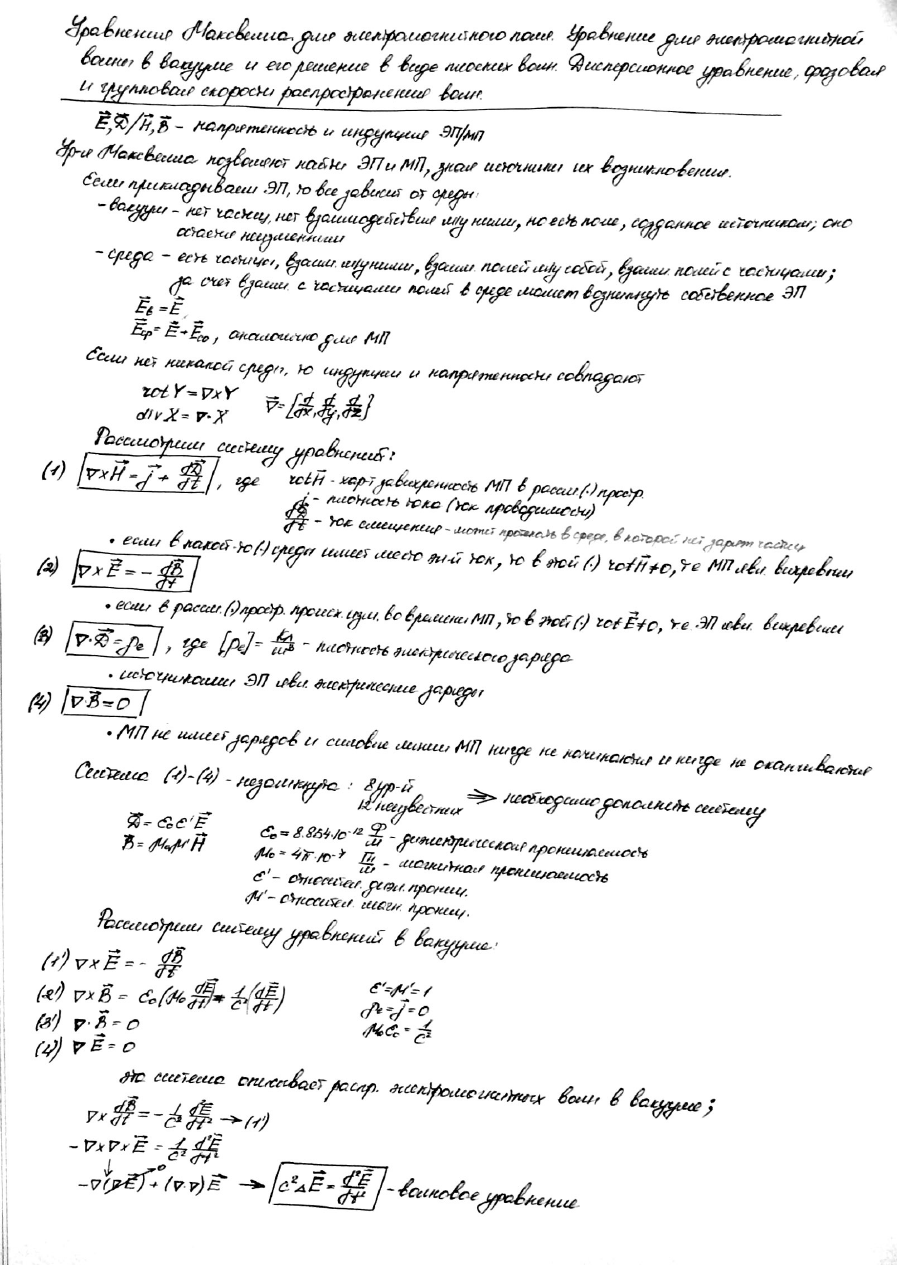 Уравнения Максвелла для электромагнитного поля. Уравнение для электромагнитной
волны в вакууме и его решение в виде плоских волн. Дисперсионное уравнение, фазовая
и групповая скорости распространения волн.
E⃗, D⃗ / H⃗, B⃗ - напряженность и индукция ЭП/МП
Ур-я Максвелла позволяют найти ЭП и МП, зная источники их возникновения.
Если прикладываем ЭП, то все зависит от среды:
- вакуум - нет частиц, нет взаимодействия м/у ними, но есть поле, созданное источником; оно
остается неизменным
- среда - есть частицы, взаим. м/у ними, взаим. полей м/у собой, взаим. полей с частицами;
за счет взаим. с частицами полей в среде может возникнуть собственное ЭП
E⃗в = E⃗
E⃗ср = E⃗ + E⃗со, аналогично для МП
Если нет никакой среды, то индукции и напряженности совпадают
rot Y = ∇×Y
div X = ∇·X   ∇⃗ = {d/dx, d/dy, d/dz}
Рассмотрим систему уравнений:
(1) ∇×H⃗ = j⃗ + dD⃗/dt, где rot H⃗ - хар-т завихренность МП в рассм. (·) простр.
j - плотность тока (ток проводимости)
dD⃗/dt - ток смещения - может протекать в среде, в которой нет заряж. частиц
• если в какой-то (·) среды имеет место эл-й ток, то в этой (·) rot H⃗ ≠ 0, т.е. МП явл. вихревым
(2) ∇×E⃗ = - dB⃗/dt
• если в рассм. (·) простр. происх. изм. во времени МП, то в этой (·) rot E⃗ ≠ 0, т.е. ЭП явл. вихревым
(3) ∇·D⃗ = ρe, где [ρe] = Кл/м³ - плотность электрического заряда
• источниками ЭП явл. электрические заряды
(4) ∇·B⃗ = 0
• МП не имеет зарядов и силовые линии МП нигде не начинаются и нигде не оканчиваются
Система (1)-(4) - незамкнута: 8 ур-й
12 неизвестных ⇒ необходимо дополнить систему
D⃗ = ε₀ε'E⃗   ε₀ = 8.854·10⁻¹² Ф/м - диэлектрическая проницаемость
B⃗ = μ₀μ'H⃗   μ₀ = 4π·10⁻⁷ Гн/м - магнитная проницаемость
ε' - относител. диэл. прониц.
μ' - относител. магн. прониц.
Рассмотрим систему уравнений в вакууме:
(1') ∇×E⃗ = - dB⃗/dt
(2') ∇×B⃗ = ε₀(μ₀ dE⃗/dt) = 1/c² (dE⃗/dt)   ε' = μ' = 1
(3') ∇·B⃗ = 0   ρe = j⃗ = 0
(4') ∇E⃗ = 0   μ₀ε₀ = 1/c²
эта система описывает распр. электромагнитных волн в вакууме;
∇× dB⃗/dt = - 1/c² d²E⃗/dt² → (1')
-∇×∇×E⃗ = 1/c² d²E⃗/dt²
-∇(∇E⃗)→0 + (∇·∇)E⃗ → c²△E⃗ = d²E⃗/dt² - волновое уравнение